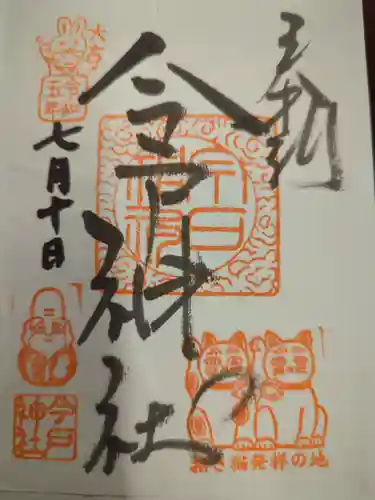 奉拝
今戸神社
大吉
七月十日
今戸
神社
招き猫発祥の地